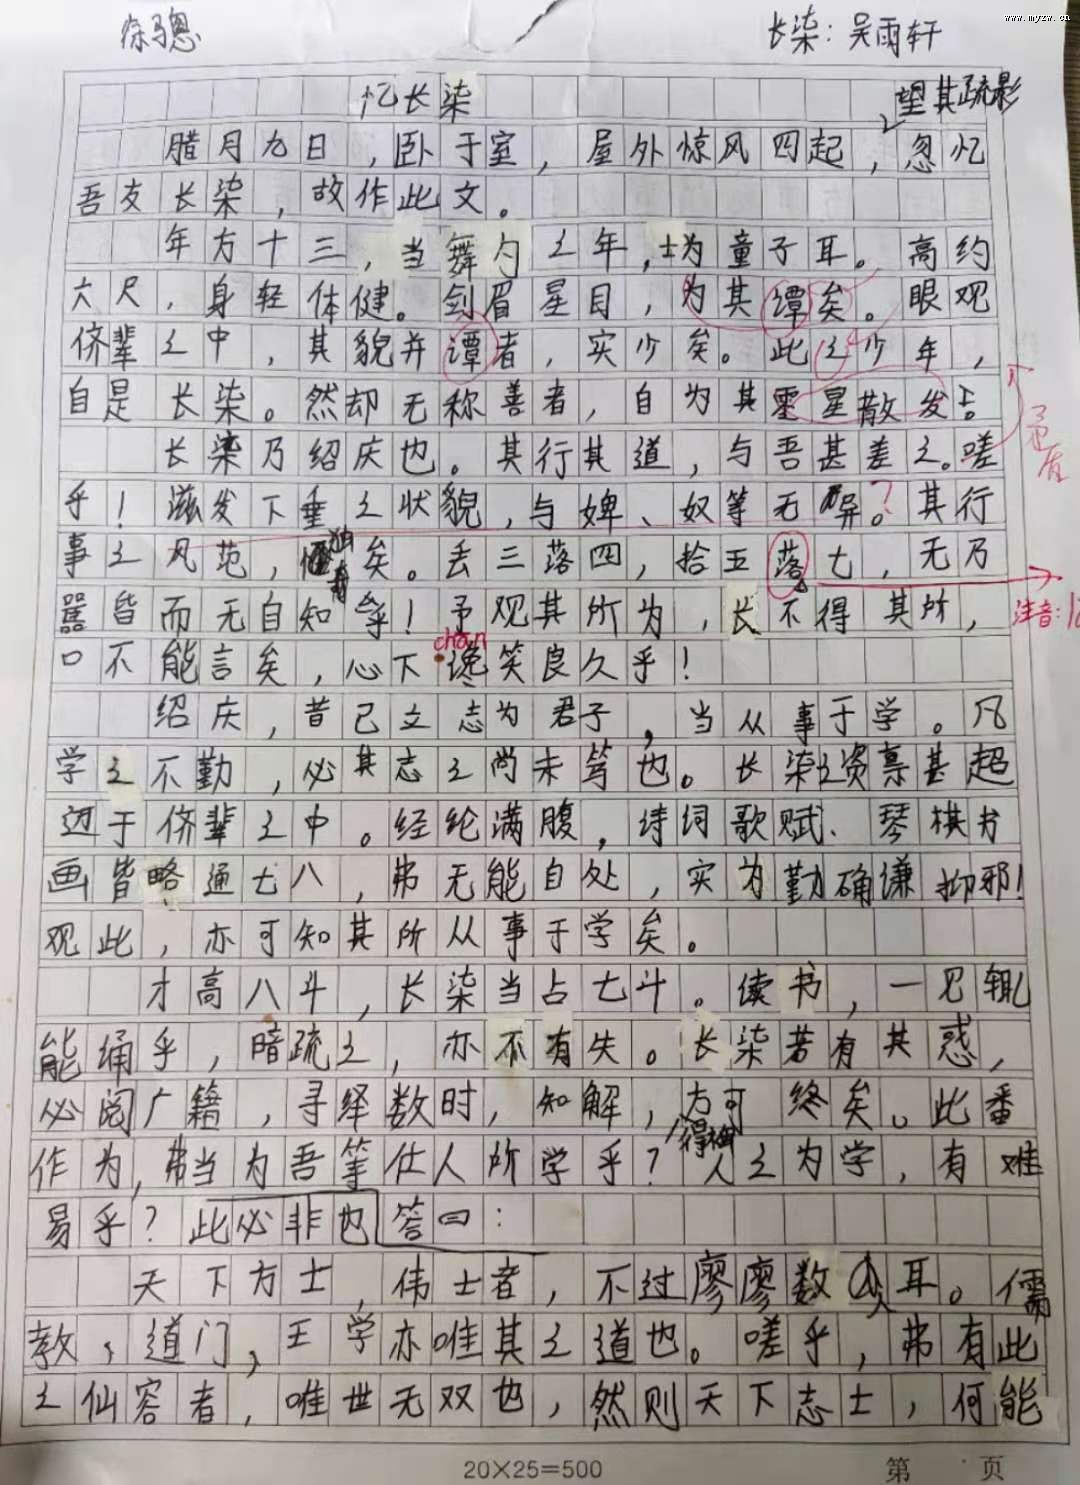 www.myzw.cn
徐骢
长柒：吴雨轩
忆长柒
望其疏影
腊月九日，卧于室，屋外惊风四起，忽忆
吾友长柒，故作此文。
年方十三，当舞勺之年，为童子耳。高约
六尺，身轻体健。剑眉星目，为其谭矣。眼观
侪辈之中，其貌并谭者，实少矣。此之少年，
自是长柒。然却无称善者，自为其零星散发占
长柒乃绍庆也。其行其道，与吾甚差之。嗟
乎！滋发下垂之状貌，与婢、奴等无异。？其行
矛盾
事之风范，独有矣。丢三落四，拾五落七，无乃
嚣皆而无自知乎！予观其所为，长不得其所，
注音：
chan
口不能言矣，心下谗笑良久乎！
绍庆，昔已立志为君子，当从事于学。凡
学之不勤，必其志之尚未笃也。长柒之资禀甚超
迈于侪辈之中。经纶满腹，诗词歌赋、琴棋书
画皆略通七八，弗无能自处，实为勤确谦抑邪！
观此，亦可知其所从事于学矣。
才高八斗，长柒当占七斗。读书，一见辄
能诵乎，暗疏之，亦不有失。长柒若有其惑，
必阅广籍，寻绎数时，知解，方可终矣。此番
作为，弗当为吾等仕人所学乎？人之为学，有难
易乎？此必非也答曰：
天下方士，伟士者，不过廖廖数人耳。儒
教、道门，王学亦唯其之道也。嗟乎，弗有此
之仙容者，唯世无双也，然则天下志士，何能
20×25=500
第 页